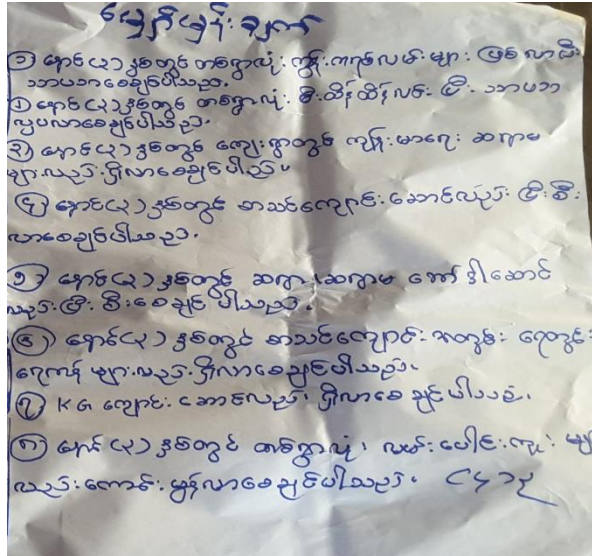 မျှော်မှန်းချက်
၁ နောင်(၃)နှစ်တွင် တစ်ရွာလုံး ကွန်ကရစ်လမ်းများ ဖြစ်လာပြီး
သာယာစေချင်ပါသည်.
၂ နောင်(၃)နှစ်တွင် တစ်ရွာလုံး မီးထိန်ထိန်လင်းပြီး သာယာ
လှပလာစေချင်ပါသည်.
၃ နောင်(၃)နှစ်တွင် ကျေးရွာတွင် ကျန်းမာရေး ဆရာမ
များလည်းရှိလာစေချင်ပါသည်.
၄ နောင်(၃)နှစ်တွင် စာသင်ကျောင်းဆောင်လည်း ပြီးစီး
လာစေချင်ပါသည်.
၅ နောင်(၃)နှစ်တွင် ဆရာ၊ဆရာမ ဘော်ဒါဆောင်
လည်းပြီးစီးစေချင်ပါသည်.
၆ နောင်(၃)နှစ်တွင် စာသင်ကျောင်းအတွက် ရေတွင်း
ရေကန်များလည်းရှိလာစေချင်ပါသည်.
၇ KG ကျောင်းဆောင်လည်း ရှိလာစေချင်ပါသည်.
၈ နောင်(၃)နှစ်တွင် တစ်ရွာလုံး လမ်းပေါင်းကူးများ
လည်းကောင်းမွန်လာစေချင်ပါသည်.